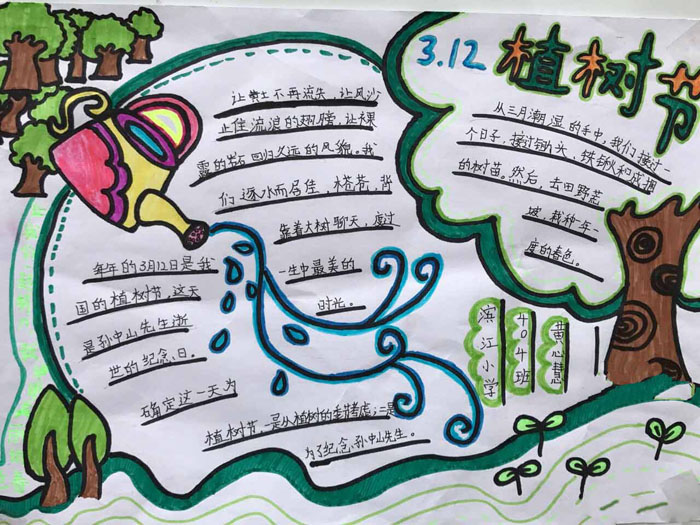 3.12 植树节
让黄土不再流失,让风沙
止住流浪的翅膀,让裸
露的岩石回归久远的风貌。我
们逐水而居住,搭苍,背
靠着大树聊天,度过
一生中最美的
时光。
每年的3月12日是我
国的植树节,这天
是孙中山先生逝
世的纪念日。
确定这一天为
植树节,一是从植树的意义考虑;二是
为了纪念孙中山先生。
从三月潮湿的手中,我们接过一
个日子,接过锄头,铁锹和成捆
的树苗。然后,去田野荒
坡,栽种一年一
度的春色。
滨江小学
404班
黄心慧